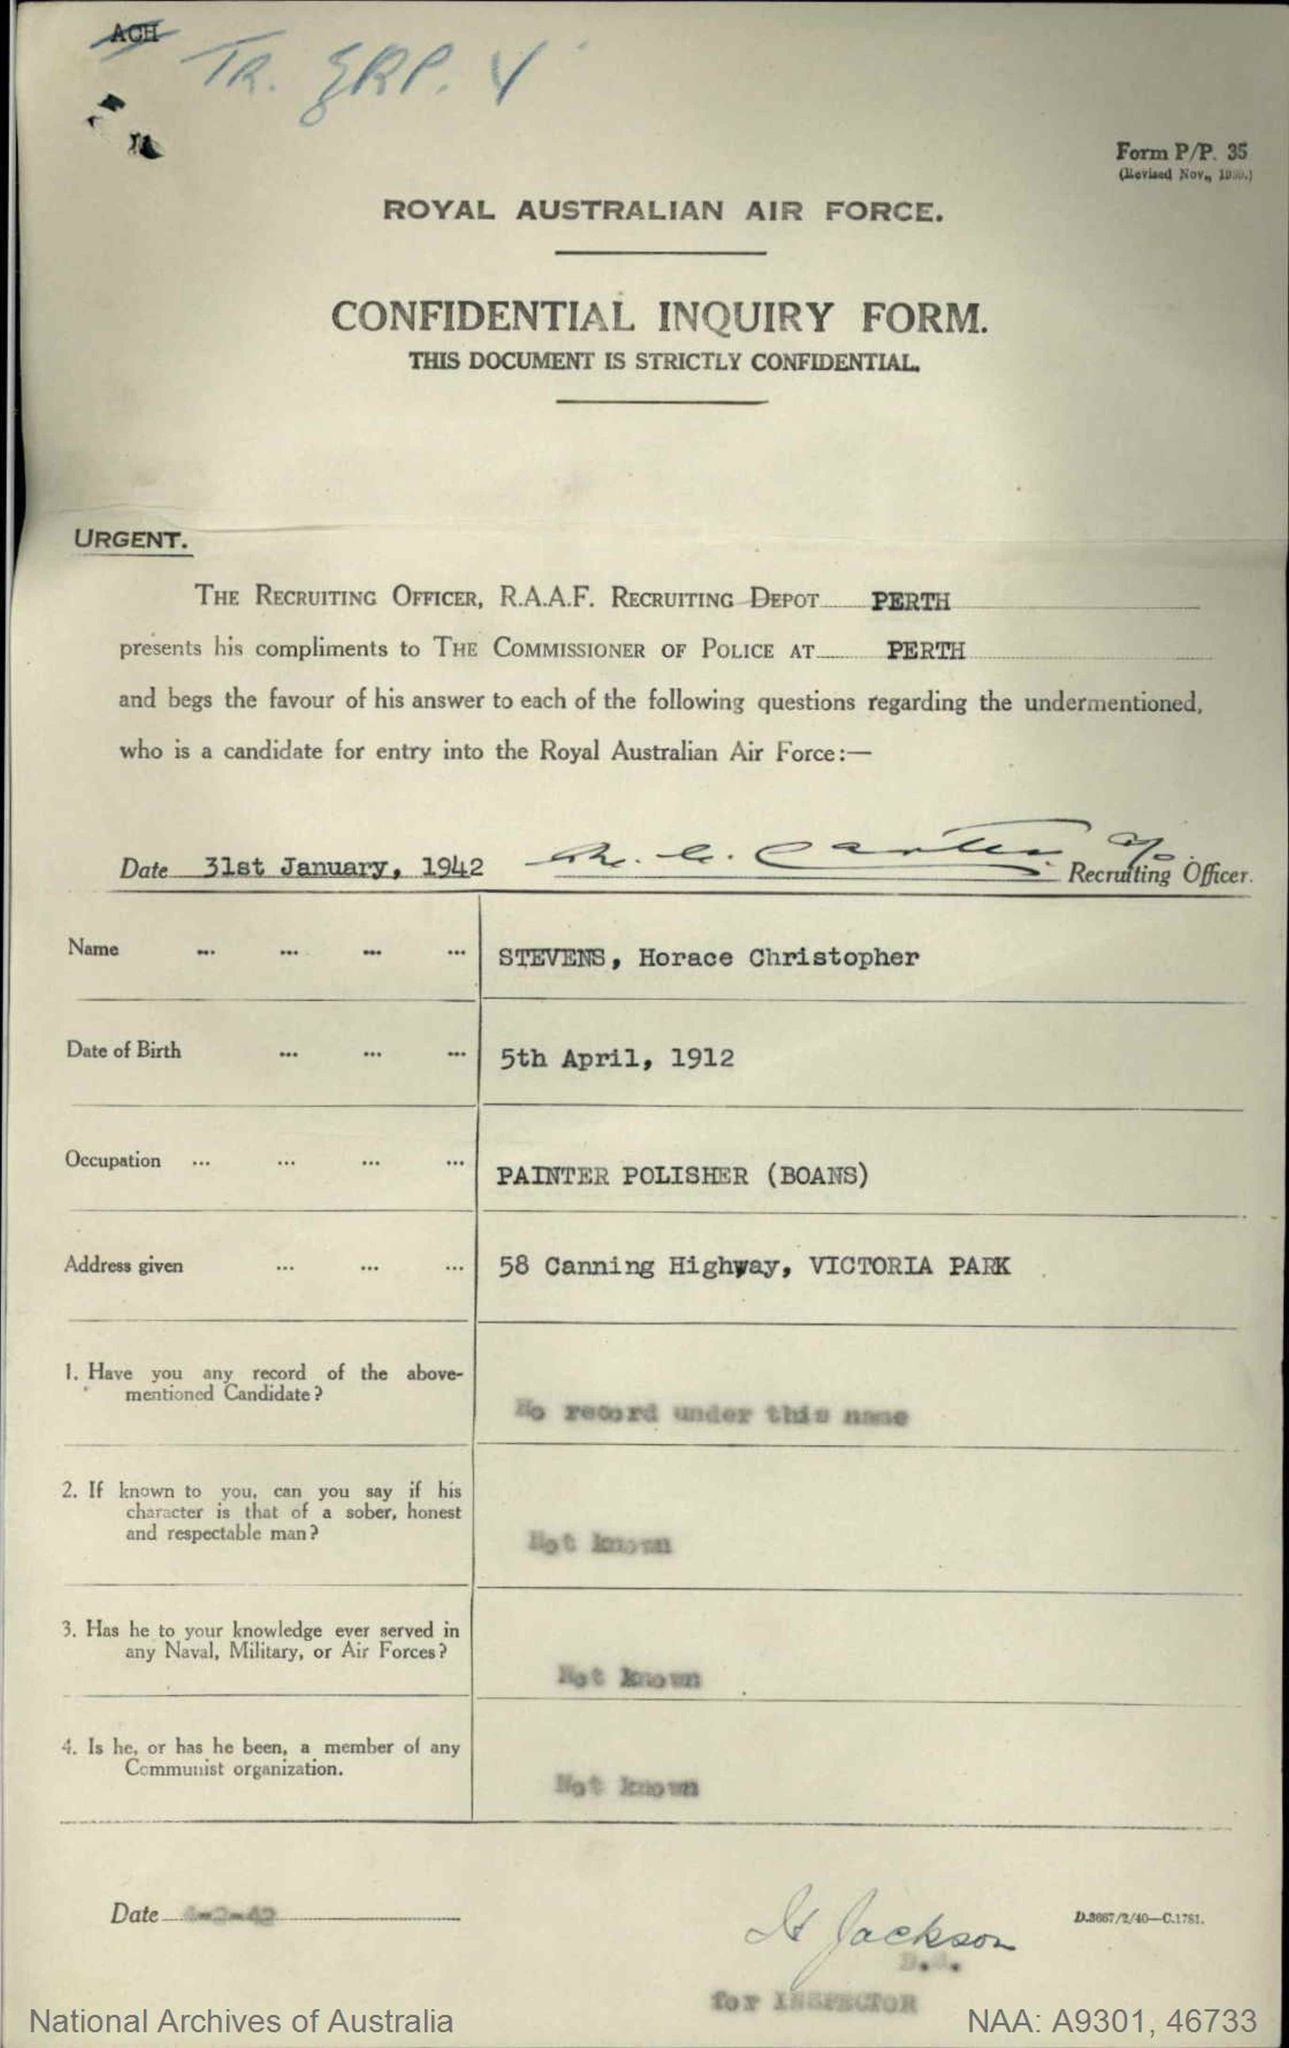 ACH
TR. GRP. V
Form P/P. 35
(Revised Nov., 1939.)
ROYAL AUSTRALIAN AIR FORCE.
CONFIDENTIAL INQUIRY FORM.
THIS DOCUMENT IS STRICTLY CONFIDENTIAL.
URGENT.
THE RECRUITING OFFICER, R.A.A.F. RECRUITING DEPOT PERTH
presents his compliments to THE COMMISSIONER OF POLICE AT PERTH
and begs the favour of his answer to each of the following questions regarding the undermentioned,
who is a candidate for entry into the Royal Australian Air Force:—
Date 31st January, 1942 Carter Recruiting Officer.
Name ... ... ... ... STEVENS, Horace Christopher
Date of Birth ... ... ... 5th April, 1912
Occupation ... ... ... ... PAINTER POLISHER (BOANS)
Address given ... ... ... 58 Canning Highway, VICTORIA PARK
1. Have you any record of the above-
mentioned Candidate?
No record under this name
2. If known to you, can you say if his
character is that of a sober, honest
and respectable man?
Not known
3. Has he to your knowledge ever served in
any Naval, Military, or Air Forces?
Not known
4. Is he, or has he been, a member of any
Communist organization.
Not known
Date 4-2-42
Jackson
D.3667/2/40—C.1781.
for INSPECTOR
National Archives of Australia
NAA: A9301, 46733